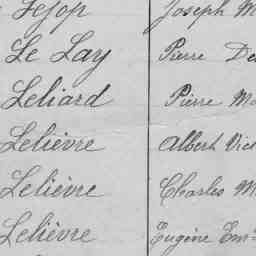 Lejop Joseph M
Le Lay Pierre De
Leliard Pierre Ma
Lelièvre Albert Vic
Lelièvre Charles M
Lelièvre Eugène Em